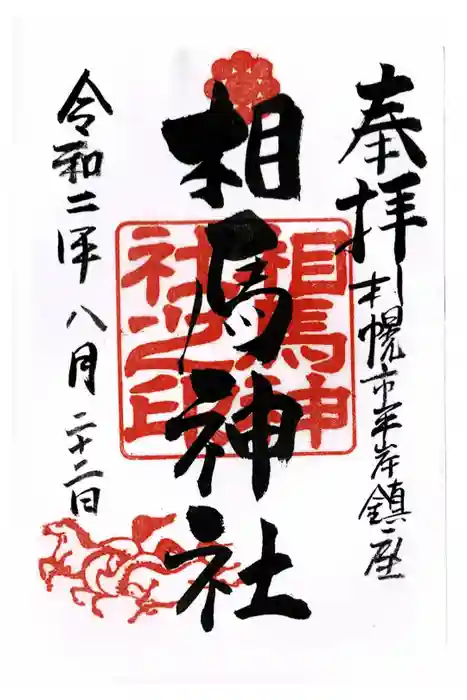 奉拝
札幌市平岸鎮座
相馬神社
相馬神
社之印
令和二年八月二十二日